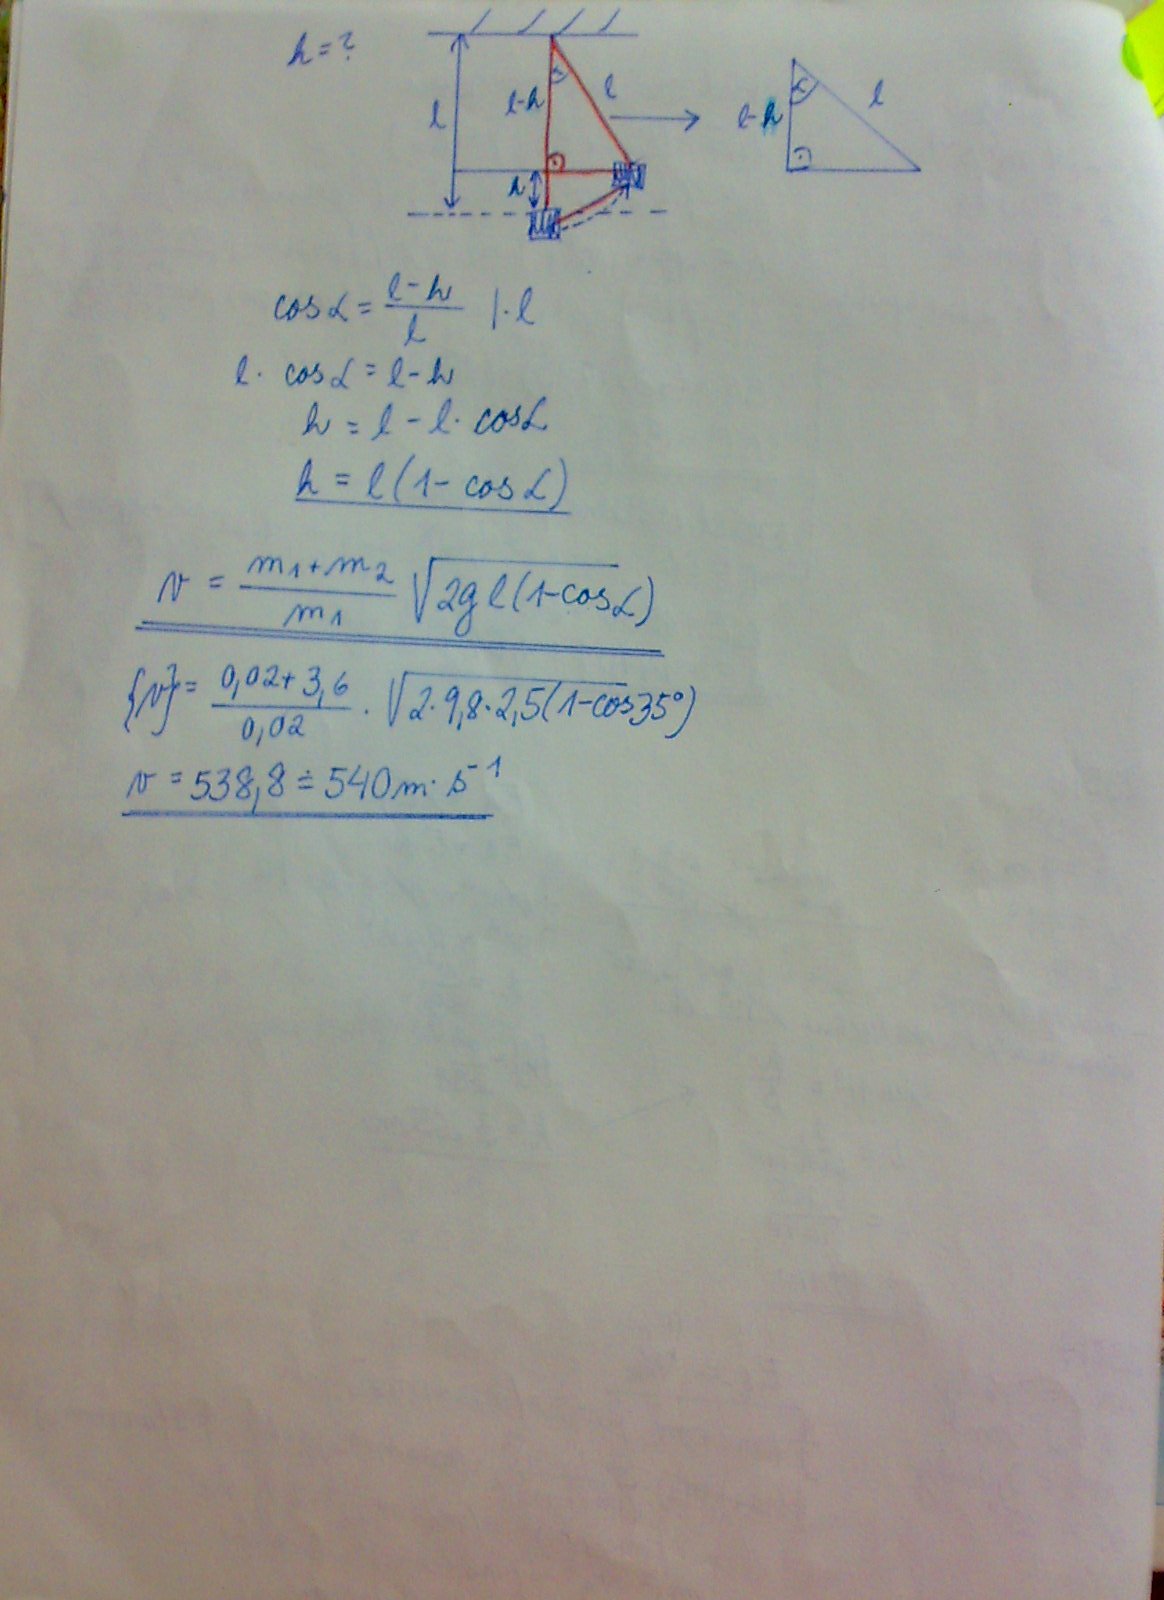 h = ?
l
l-h
α
l
h
l-h
α
l
cos α = (l-h)/l |·l
l· cos α = l-h
h = l - l· cos α
h = l(1- cos α)
v = (m1+m2)/m1 √2gl(1-cos α)
{v} = (0,02+3,6)/0,02 · √2·9,8·2,5(1-cos35°)
v = 538,8 ≐ 540 m· s⁻¹